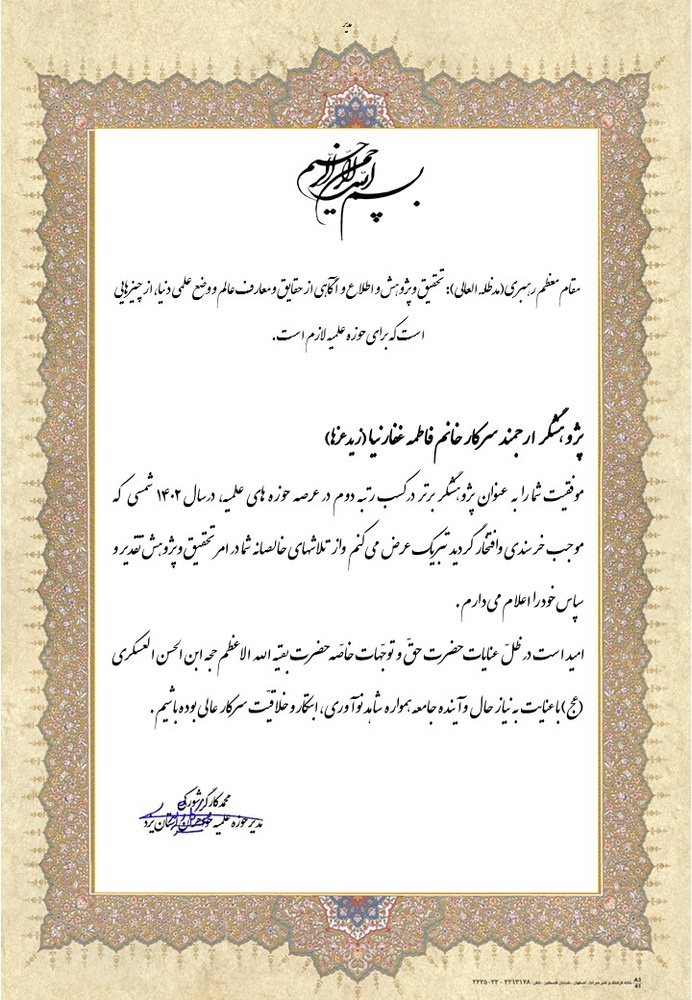 مدیر
بسم الله الرحمن الرحیم
مقام معظم رهبری(مدظله العالی): تحقیق و پژوهش و اطلاع و آگاهی از حقایق و معارف عالم و وضع علمی دنیا، از چیزهایی
است که برای حوزه علمیه لازم است.
پژوهشگر ارجمند سرکار خانم فاطمه غفارنیا (زیدعزها)
موفقیت شما را به عنوان پژوهشگر برتر درکسب رتبه دوم در عرصه حوزه های علمیه، درسال ۱۴۰۲ شمسی که
موجب خرسندی وافتخار گردید تبریک عرض می کنم واز تلاشهای خالصانه شما در امر تحقیق و پژوهش تقدیر و
سپاس خود را اعلام می دارم .
امید است در ظلّ عنایات حضرت حقّ و توجّهات خاصّه حضرت بقیه الله الاعظم حجه ابن الحسن العسکری
(عج) با عنایت به نیاز حال و آینده جامعه همواره شاهد نوآوری، ابتکار و خلاقیّت سرکار عالی بوده باشیم .
محمد کارگر شورکی
مدیر حوزه علمیه خواهران استان یزد
A3 خانه فرهنگ و هنر میراث: اصفهان - خیابان فلسطین - تلفن: ۲۲۱۳۱۲۸ - ۲۲۲۵۰۲۲
41